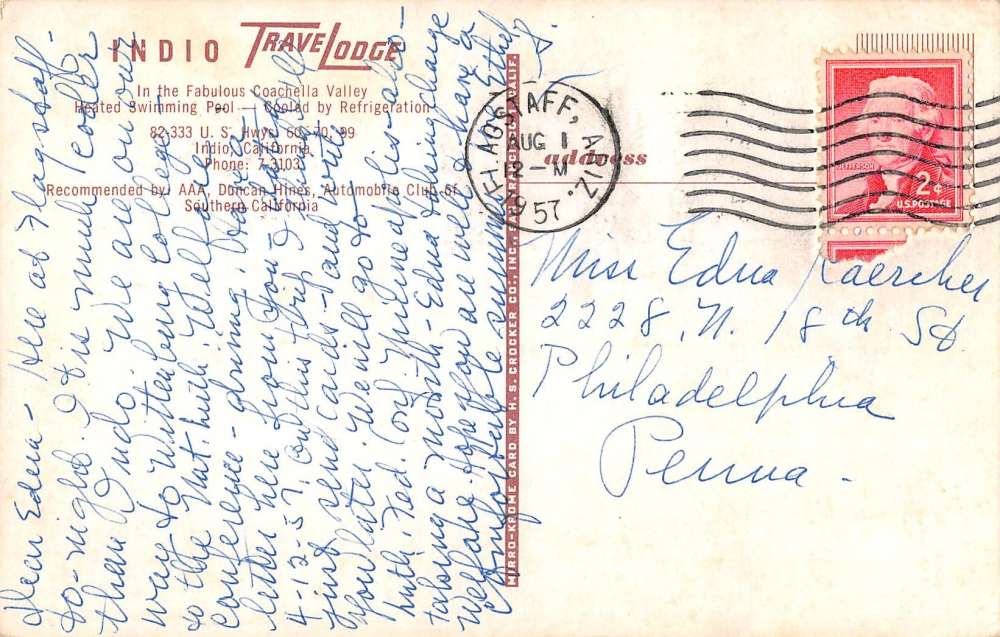 INDIO TRAVELODGE
In the Fabulous Coachella Valley
Heated Swimming Pool — Cooled by Refrigeration
82-333 U. S. Hwys. 60, 70, 99
Indio, California
Phone: 7-3103
Recommended by AAA, Duncan Hines, Automobile Club of
Southern California
Dear Edna - Here at Flagstaff
to-night. It is much cooler
than Indio. We are on our
way to Wittenberg College
to the Nat. Luth. Welfare
conference - driving. Had a
letter here from you -
4-12-57. On this trip I will
just send cards - and write
you later. We will go to
Luth. Fed. (of Minneapolis also -
taking a month - Edna
Welfare. Hope you are well & have a
comfortable summer. Ethel
MIRRO-KROME CARD BY H. S. CROCKER CO., INC., SAN FRANCISCO, CALIF.
FLAGSTAFF, ARIZ.
AUG 1
12-M
1957
address
JEFFERSON
2¢
U.S. POSTAGE
Miss Edna Kaercher
2228 N. 18th St
Philadelphia
Penna.